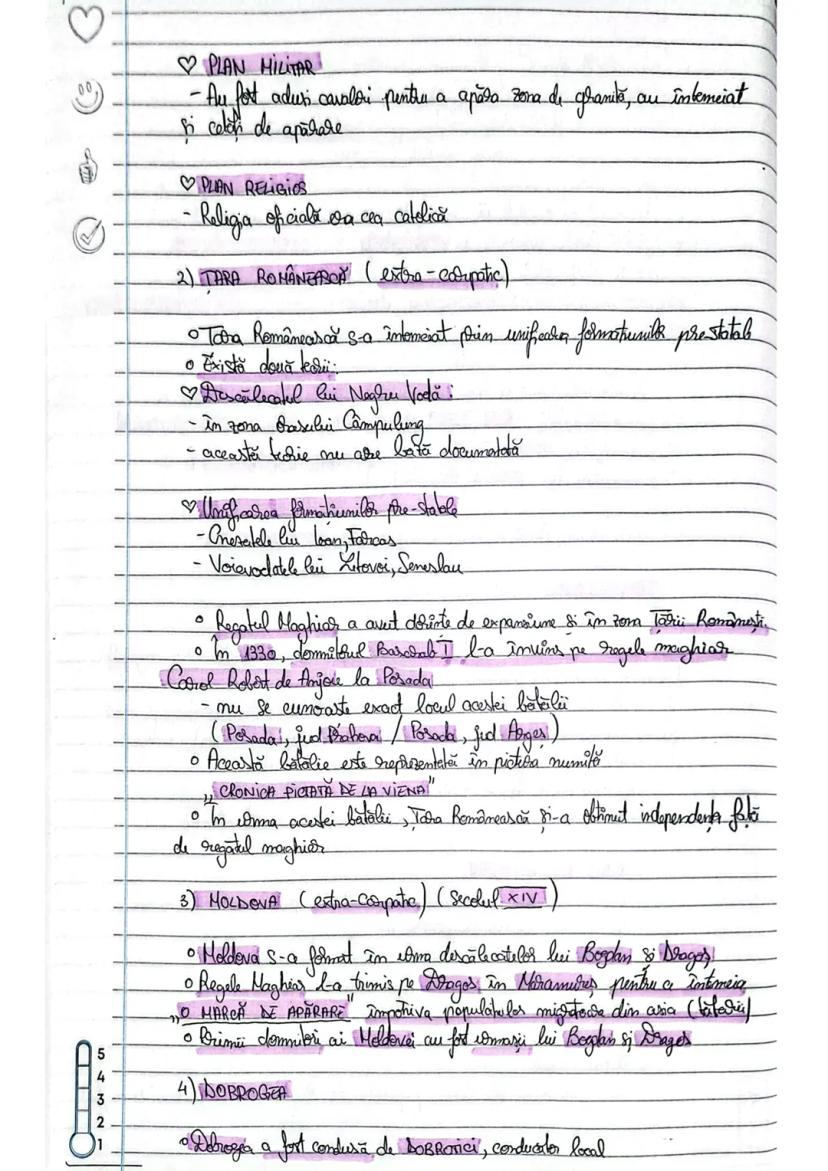 ♡ PLAN MILITAR
- Au fost aduși cavaleri pentru a apăra zona de graniță, au întemeiat
și cetăți de apărare
♡ PLAN RELIGIOS
- Religia oficială era cea catolică
2) ȚARA ROMÂNEASCĂ (extra-carpatic)
○ Țara Românească s-a întemeiat prin unificarea formațiunilor pre-statale
○ Există două teorii:
♡ Descălecatul lui Negru Vodă:
- în zona Orașului Câmpulung
- această teorie nu are bază documentată
♡ Unificarea formațiunilor pre-statale
- Cnezatele lui Ioan, Farcaș
- Voievodatele lui Litovoi, Seneslau
○ Regatul Maghiar a avut dorințe de expansiune și în zona Țării Românești.
○ În 1330, domnitorul Basarab I l-a învins pe regele maghiar
Carol Robert de Anjou la Posada
- nu se cunoaște exact locul acestei bătălii
(Posada, jud Prahova / Posada, jud Argeș)
○ Această bătălie este reprezentată în pictura numită
„CRONICA PICTATĂ DE LA VIENA"
○ În urma acestei bătălii, Țara Românească și-a obținut independența față
de regatul maghiar
3) MOLDOVA (extra-Carpatic) (Secolul XIV)
○ Moldova s-a format în urma descălecatelor lui Bogdan și Dragoș
○ Regele Maghiar l-a trimis pe Dragoș în Maramureș pentru a întemeia
„O MARCĂ DE APĂRARE" împotriva populațiilor migratoare din asia (tătarii)
○ Primii domnitori ai Moldovei au fost urmașii lui Bogdan și Dragoș
4) DOBROGEA
○ Dobrogea a fost condusă de DOBROTICI, conducător local
5
4
3
2
1